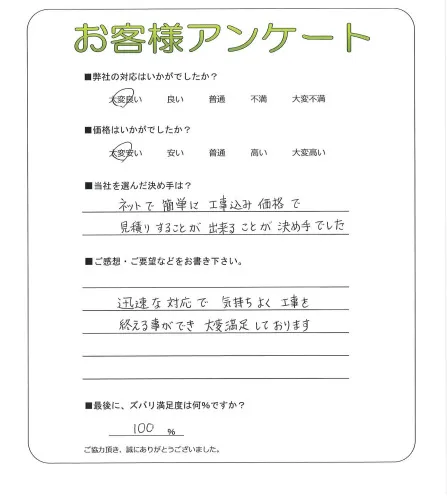 お客様アンケート
■弊社の対応はいかがでしたか？
大変良い 良い 普通 不満 大変不満
■価格はいかがでしたか？
大変安い 安い 普通 高い 大変高い
■当社を選んだ決め手は？
ネットで 簡単に 工事込み 価格で
見積りすることが 出来ることが 決め手でした
■ご感想・ご要望などをお書き下さい。
迅速な対応で 気持ちよく 工事を
終える事ができ 大変満足しております
■最後に、ズバリ満足度は何％ですか？
100 %
ご協力頂き、誠にありがとうございました。